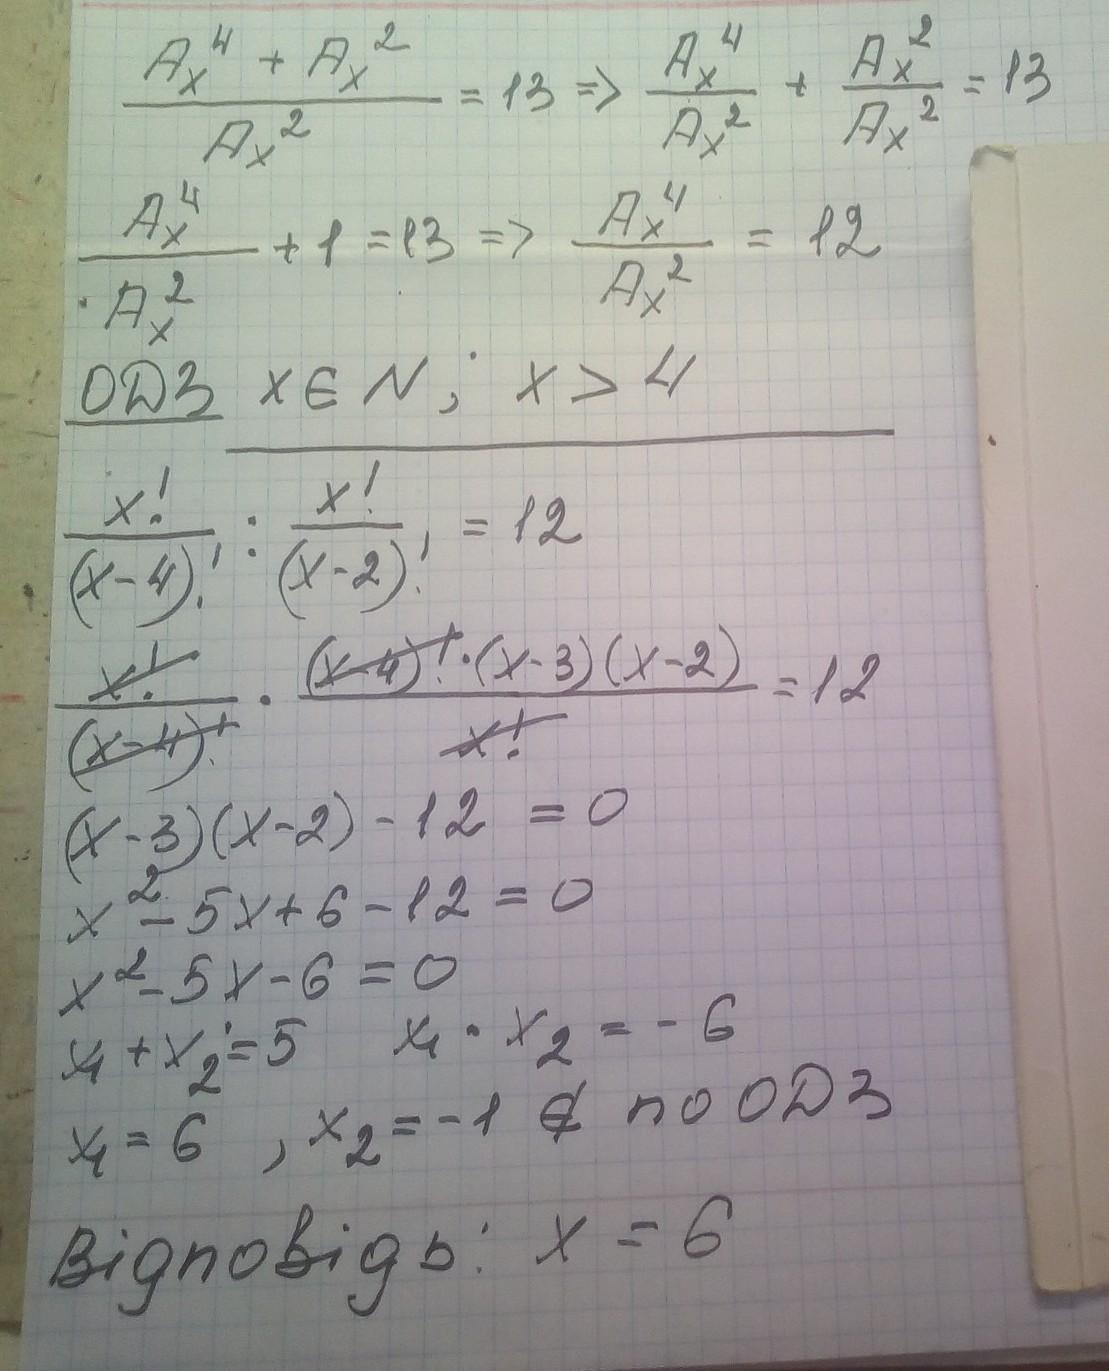 (A_x^4 + A_x^2) / A_x^2 = 13 => A_x^4 / A_x^2 + A_x^2 / A_x^2 = 13
A_x^4 / A_x^2 + 1 = 13 => A_x^4 / A_x^2 = 12
ОДЗ x ∈ N; x > 4
x! / (x-4)! : x! / (x-2)! = 12
x! / (x-4)! · (x-4)!·(x-3)(x-2) / x! = 12
(x-3)(x-2) - 12 = 0
x² - 5x + 6 - 12 = 0
x² - 5x - 6 = 0
x₁ + x₂ = 5 x₁ · x₂ = -6
x₁ = 6 , x₂ = -1 ∉ по ОДЗ
Відповідь: x = 6